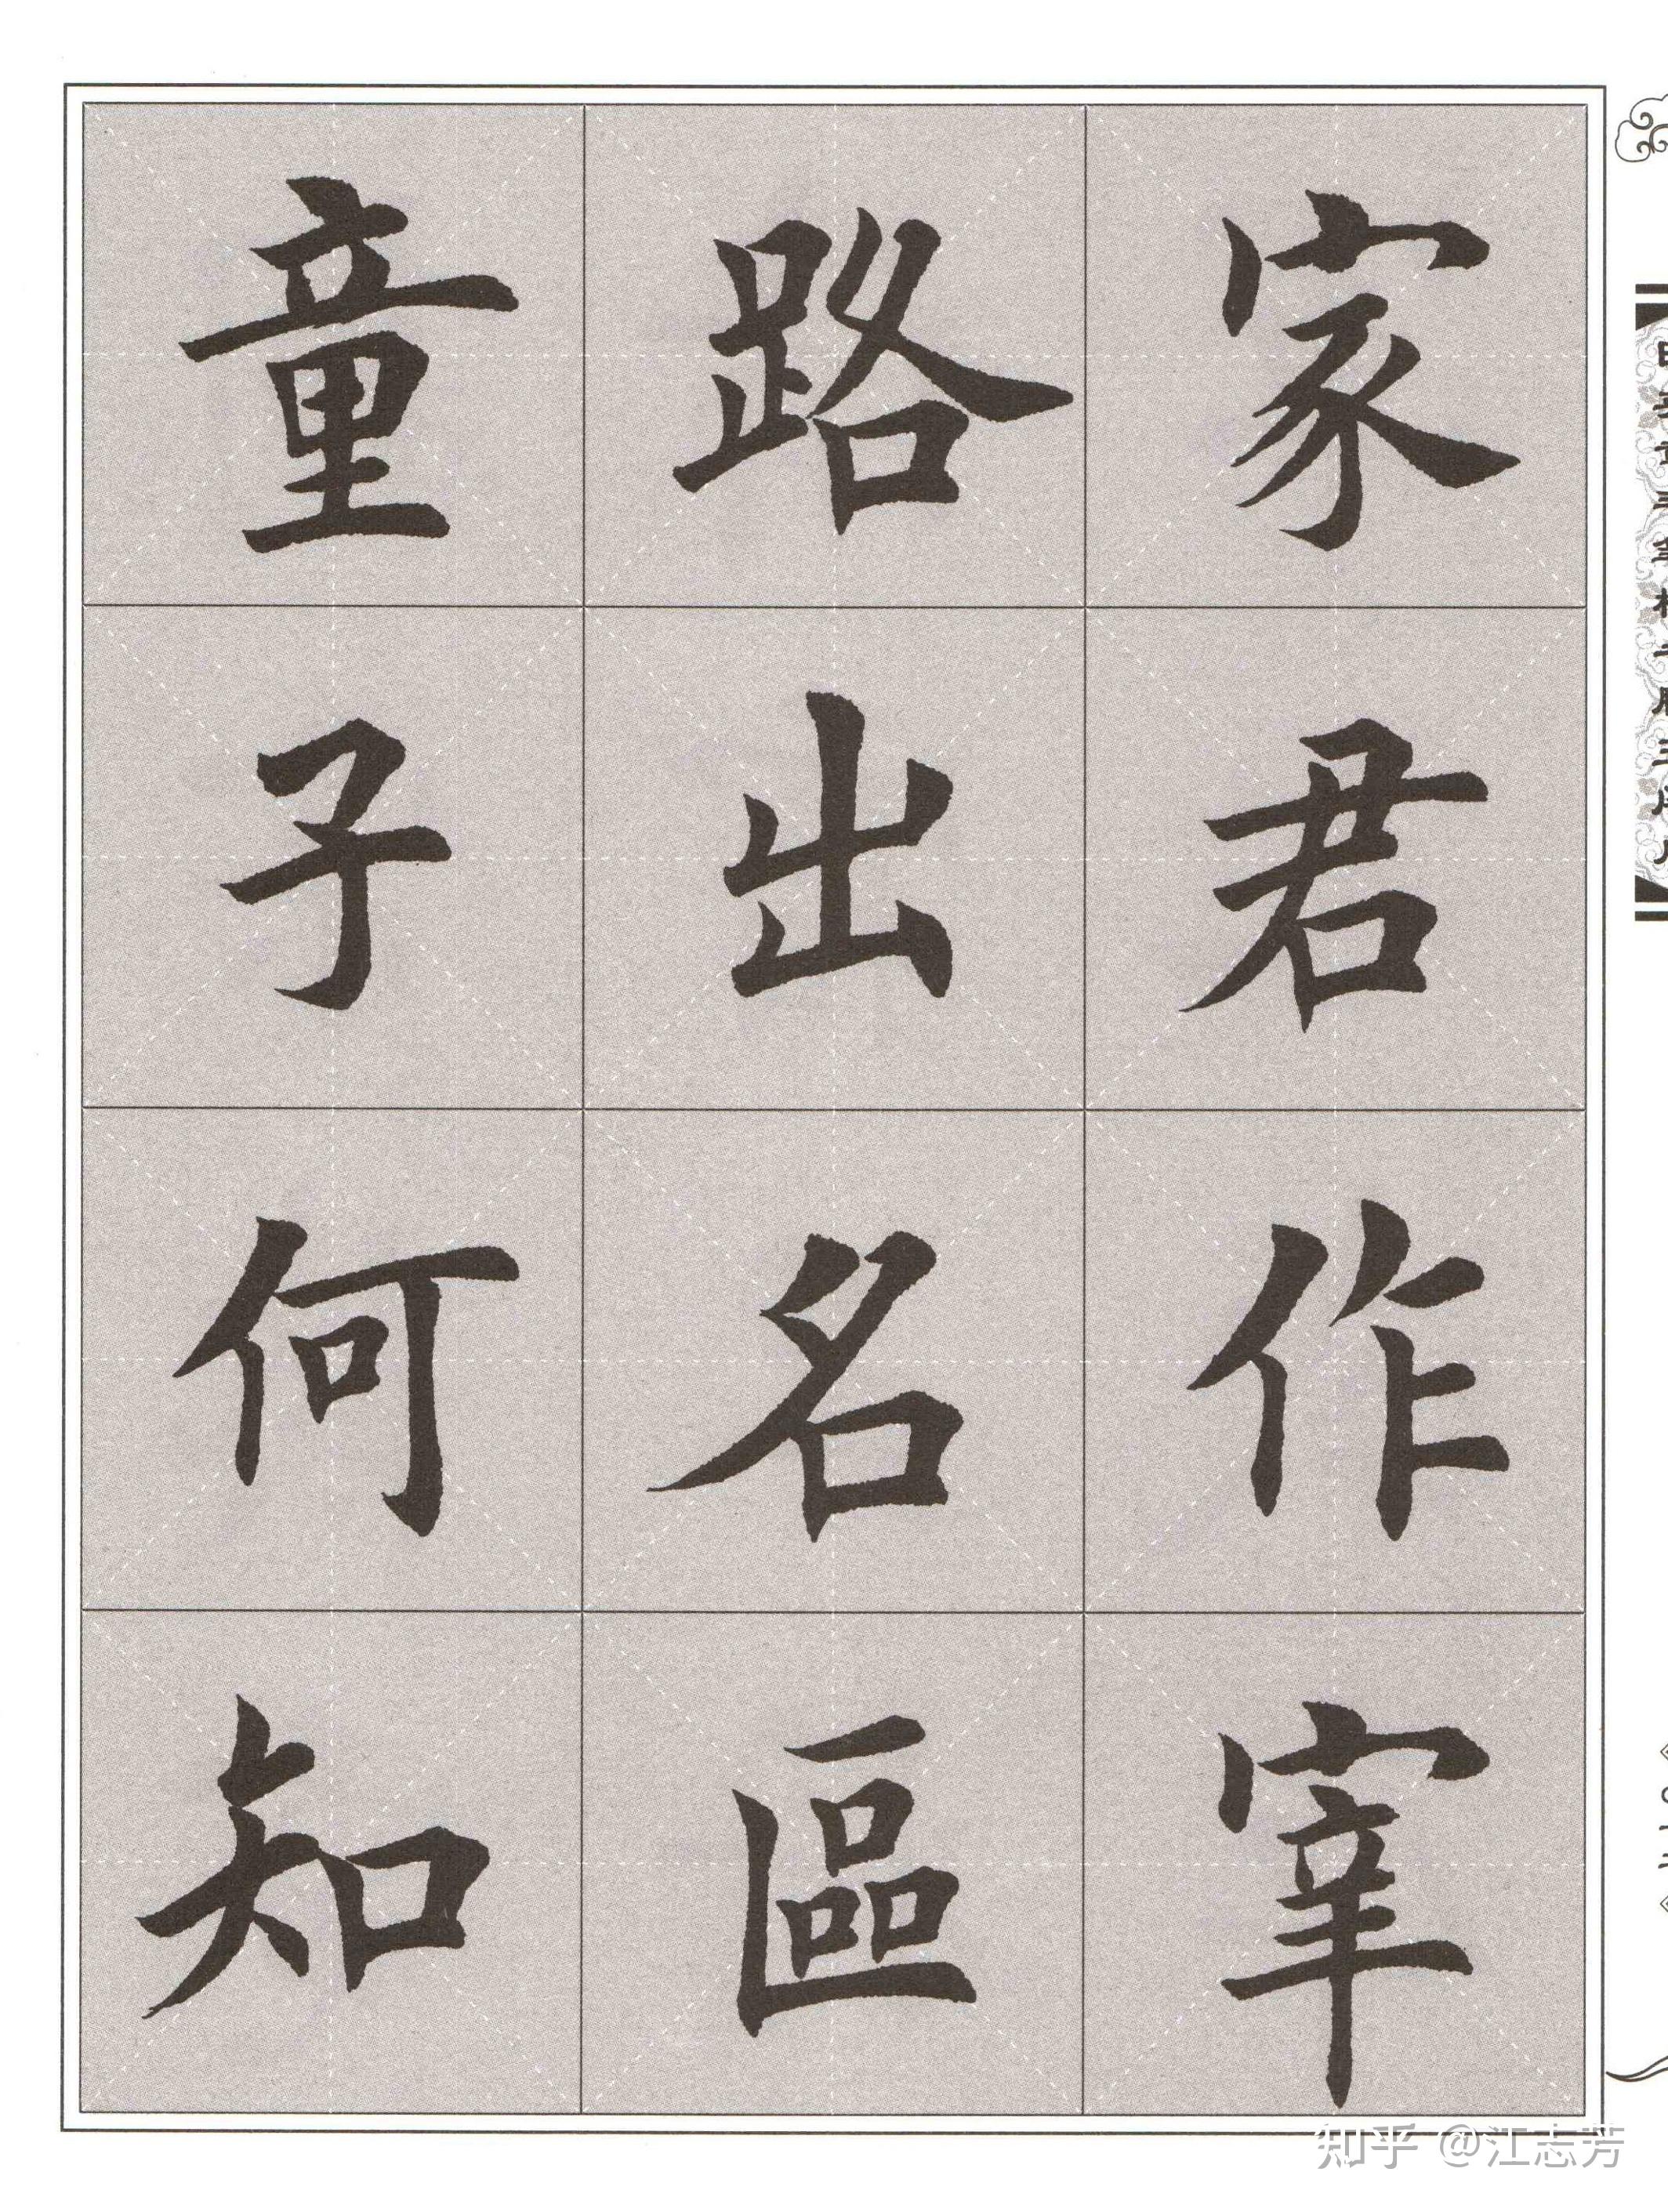 家君作宰
路出名區
童子何知
知乎 @江志芳